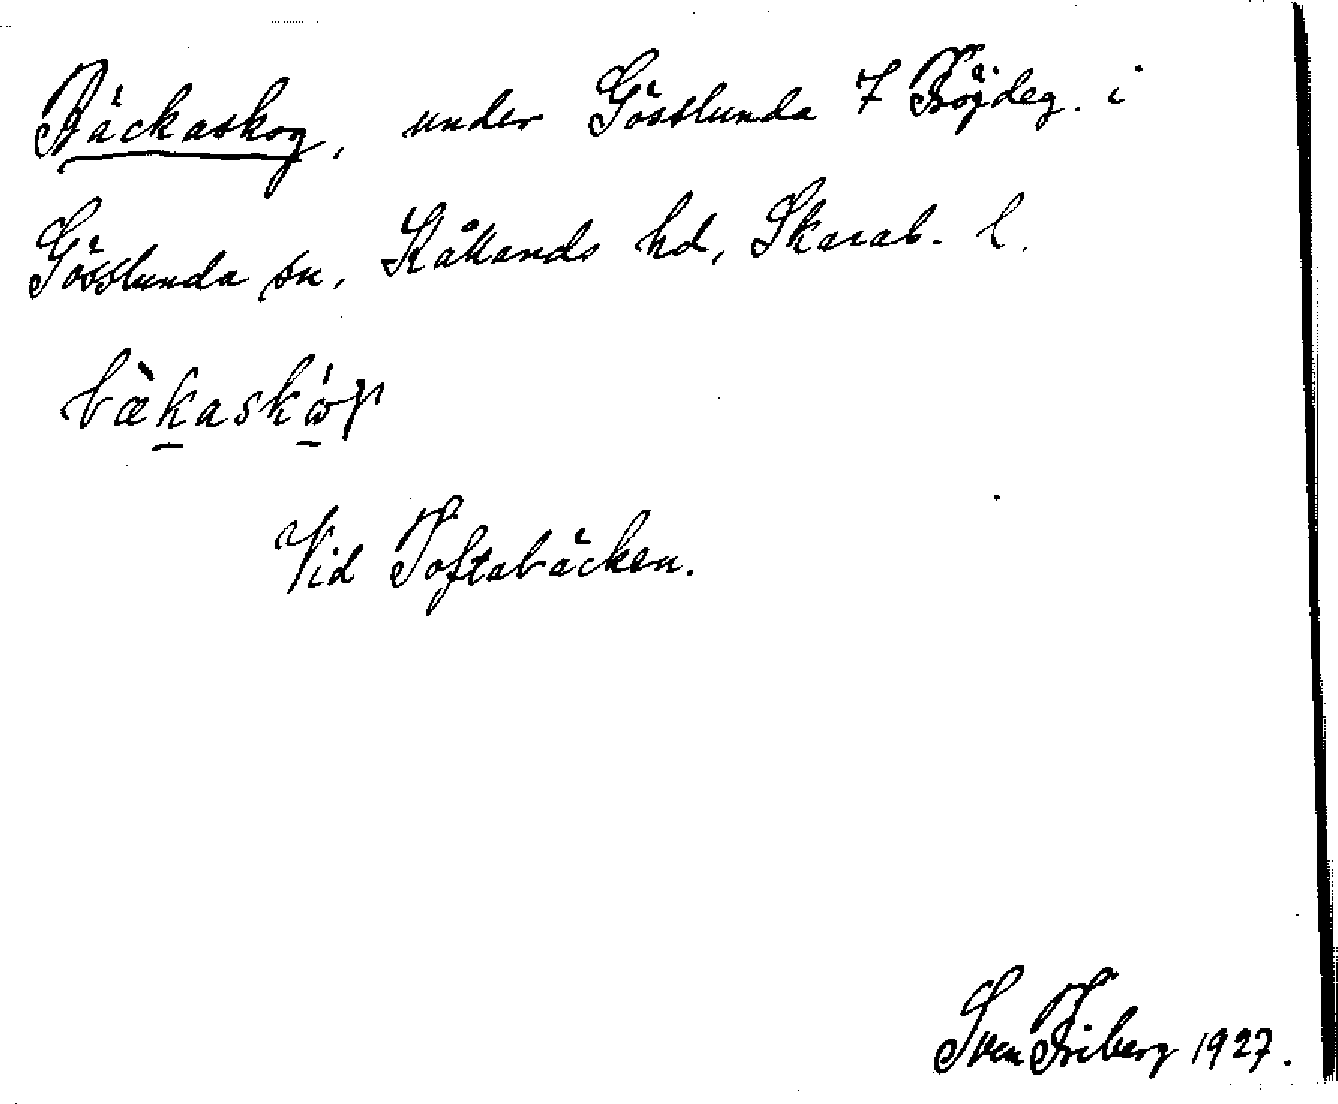 Bäckaskog, under Gösslunda 7 Fröjdeg. i
Gösslunda sn, Kållands hd, Skarab. l.
bæ̀kaskóγ
Vid Toftabäcken.
Sven Friberg 1927.